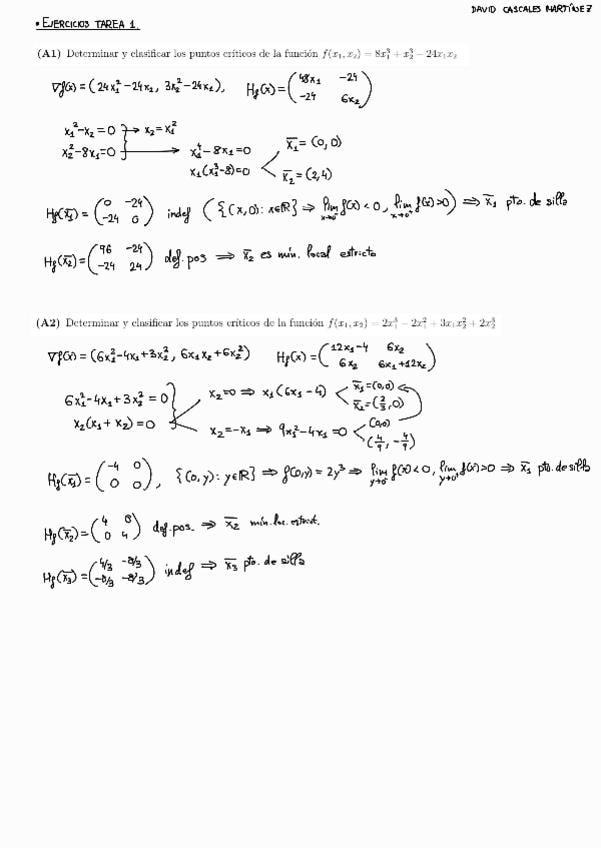 DAVID CASCALES MARTÍNEZ
• EJERCICIOS TAREA 1.
(A1) Determinar y clasificar los puntos críticos de la función f(x₁, x₂) = 8x₁³ + x₂³ − 24x₁x₂
∇f(x) = (24x₁² − 24x₂, 3x₂² − 24x₁), Hf(x) = (48x₁ −24
−24 6x₂)
x₁² − x₂ = 0 → x₂ = x₁²
x₂² − 8x₁ = 0 → x₁⁴ − 8x₁ = 0
x₁(x₁³ − 8) = 0
x̄₁ = (0,0)
x̄₂ = (2,4)
Hf(x̄₁) = (0 −24
−24 0) indef ({(x,0): x∈ℝ} ⇒ lim x→0⁻ f(x) < 0, lim x→0⁺ f(x) > 0) ⇒ x̄₁ pto. de silla
Hf(x̄₂) = (96 −24
−24 24) def. pos ⇒ x̄₂ es mín. local estricto
(A2) Determinar y clasificar los puntos críticos de la función f(x₁, x₂) = 2x₁³ − 2x₁² + 3x₁x₂² + 2x₂³
∇f(x) = (6x₁² − 4x₁ + 3x₂², 6x₁x₂ + 6x₂²) Hf(x) = (12x₁−4 6x₂
6x₂ 6x₁+12x₂)
6x₁² − 4x₁ + 3x₂² = 0
x₂(x₁ + x₂) = 0
x₂=0 ⇒ x₁(6x₁ − 4)
x̄₁ = (0,0)
x̄₂ = (2/3, 0)
x₂ = −x₁ ⇒ 9x₁² − 4x₁ = 0
(0,0)
(4/9, −4/9)
Hf(x̄₁) = (−4 0
0 0), {(0,y): y∈ℝ} ⇒ f(0,y) = 2y³ ⇒ lim y→0⁻ f(x) < 0, lim y→0⁺ f(x) > 0 ⇒ x̄₁ pto. de silla
Hf(x̄₂) = (4 0
0 4) def. pos. ⇒ x̄₂ mín. loc. estrict.
Hf(x̄₃) = (4/3 −8/3
−8/3 −8/3) indef ⇒ x̄₃ pto. de silla